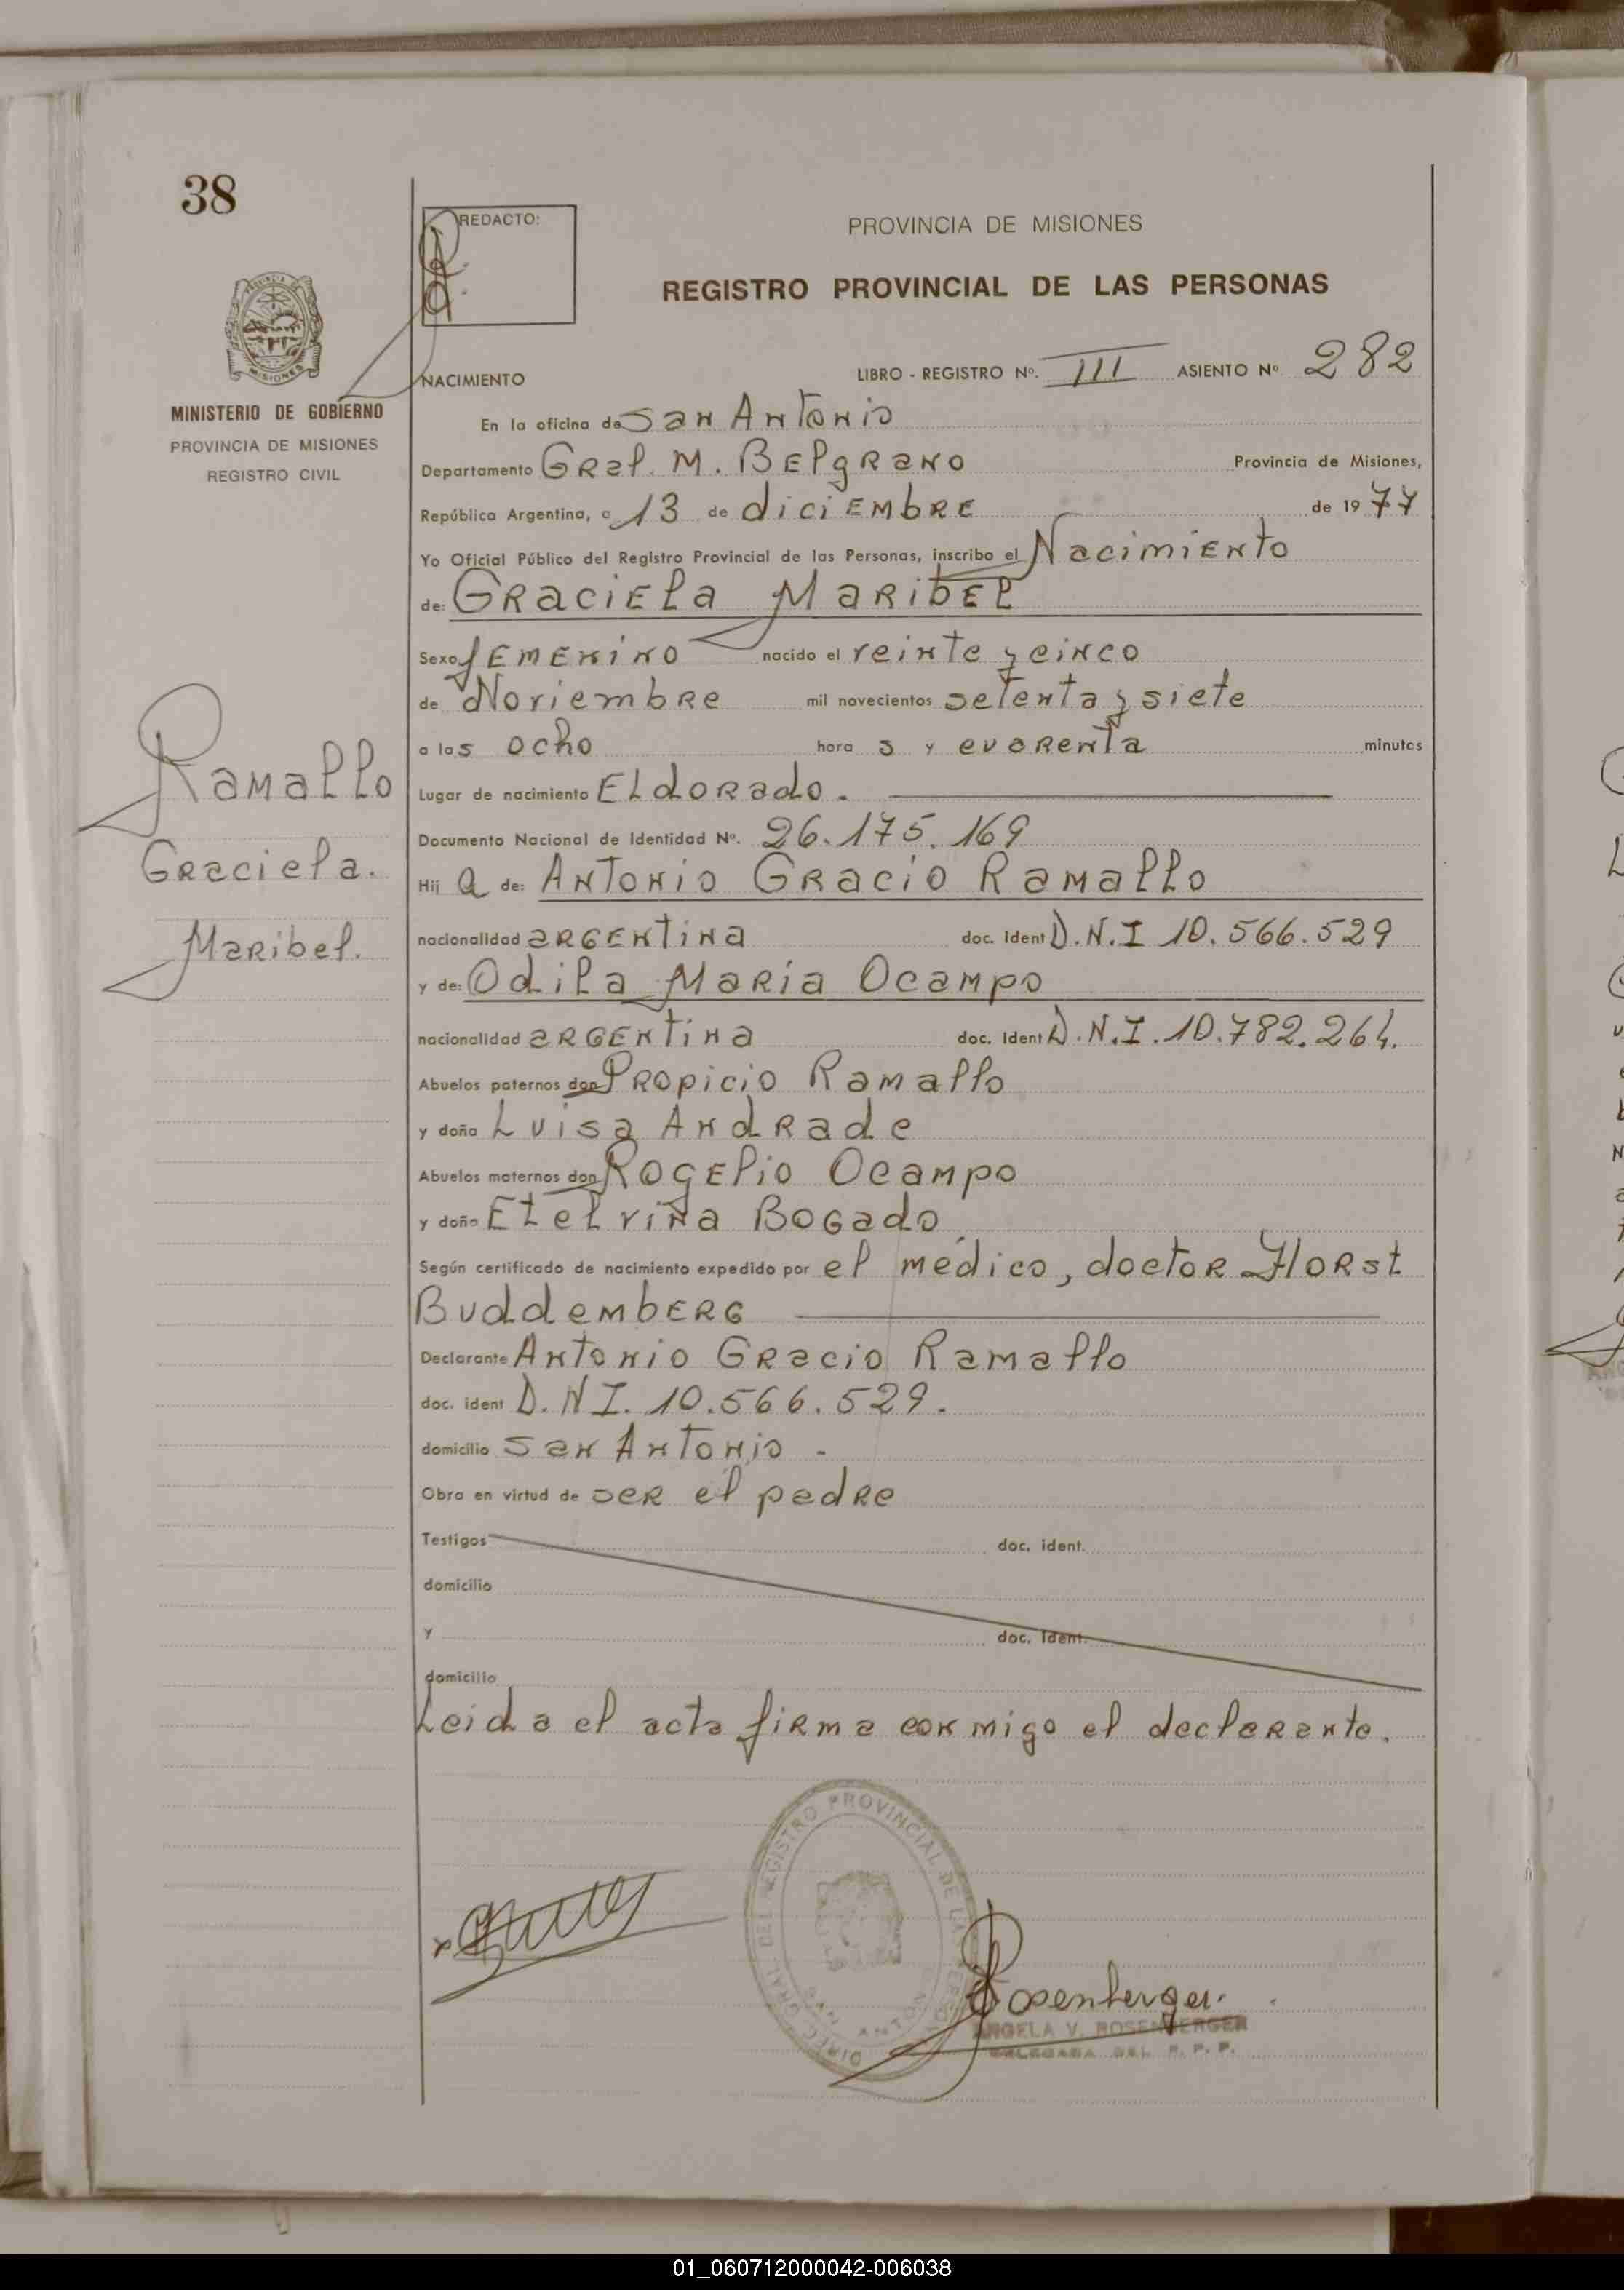 38
REDACTO:
PROVINCIA DE MISIONES
REGISTRO PROVINCIAL DE LAS PERSONAS
NACIMIENTO LIBRO - REGISTRO Nº. III ASIENTO Nº 282
MISIONES
MINISTERIO DE GOBIERNO
PROVINCIA DE MISIONES
REGISTRO CIVIL
En la oficina de San Antonio
Departamento Gral. M. Belgrano Provincia de Misiones,
República Argentina, a 13 de diciembre de 1977
Yo Oficial Público del Registro Provincial de las Personas, inscribo el Nacimiento
de: Graciela Maribel
Sexo femenino nacido el veinte y cinco
de Noviembre mil novecientos setenta y siete
a las ocho hora s y cuarenta minutos
Lugar de nacimiento Eldorado.
Documento Nacional de Identidad Nº. 26.175.169
Hij a de: Antonio Gracio Ramallo
nacionalidad argentina doc. ident D.N.I 10.566.529
y de: Odila Maria Ocampo
nacionalidad argentina doc. ident D.N.I. 10.782.264.
Abuelos paternos don Propicio Ramallo
y doña Luisa Andrade
Abuelos maternos don Rogelio Ocampo
y doña Etelvina Bogado
Según certificado de nacimiento expedido por el médico, doctor Horst
Buddemberg
Declarante Antonio Gracio Ramallo
doc. ident D.N.I. 10.566.529.
domicilio San Antonio -
Obra en virtud de ser el padre
Testigos doc. ident.
domicilio
y doc. ident.
domicilio
Leida el acta firma conmigo el declarante.
Ramallo
Graciela.
Maribel.
DIREC. GRAL. DEL REGISTRO PROVINCIAL DE LAS PERSONAS
SAN ANTONIO
Rosenberger.
ANGELA V. ROSENBERGER
DELEGADA DEL R. P. P.
01_060712000042-006038